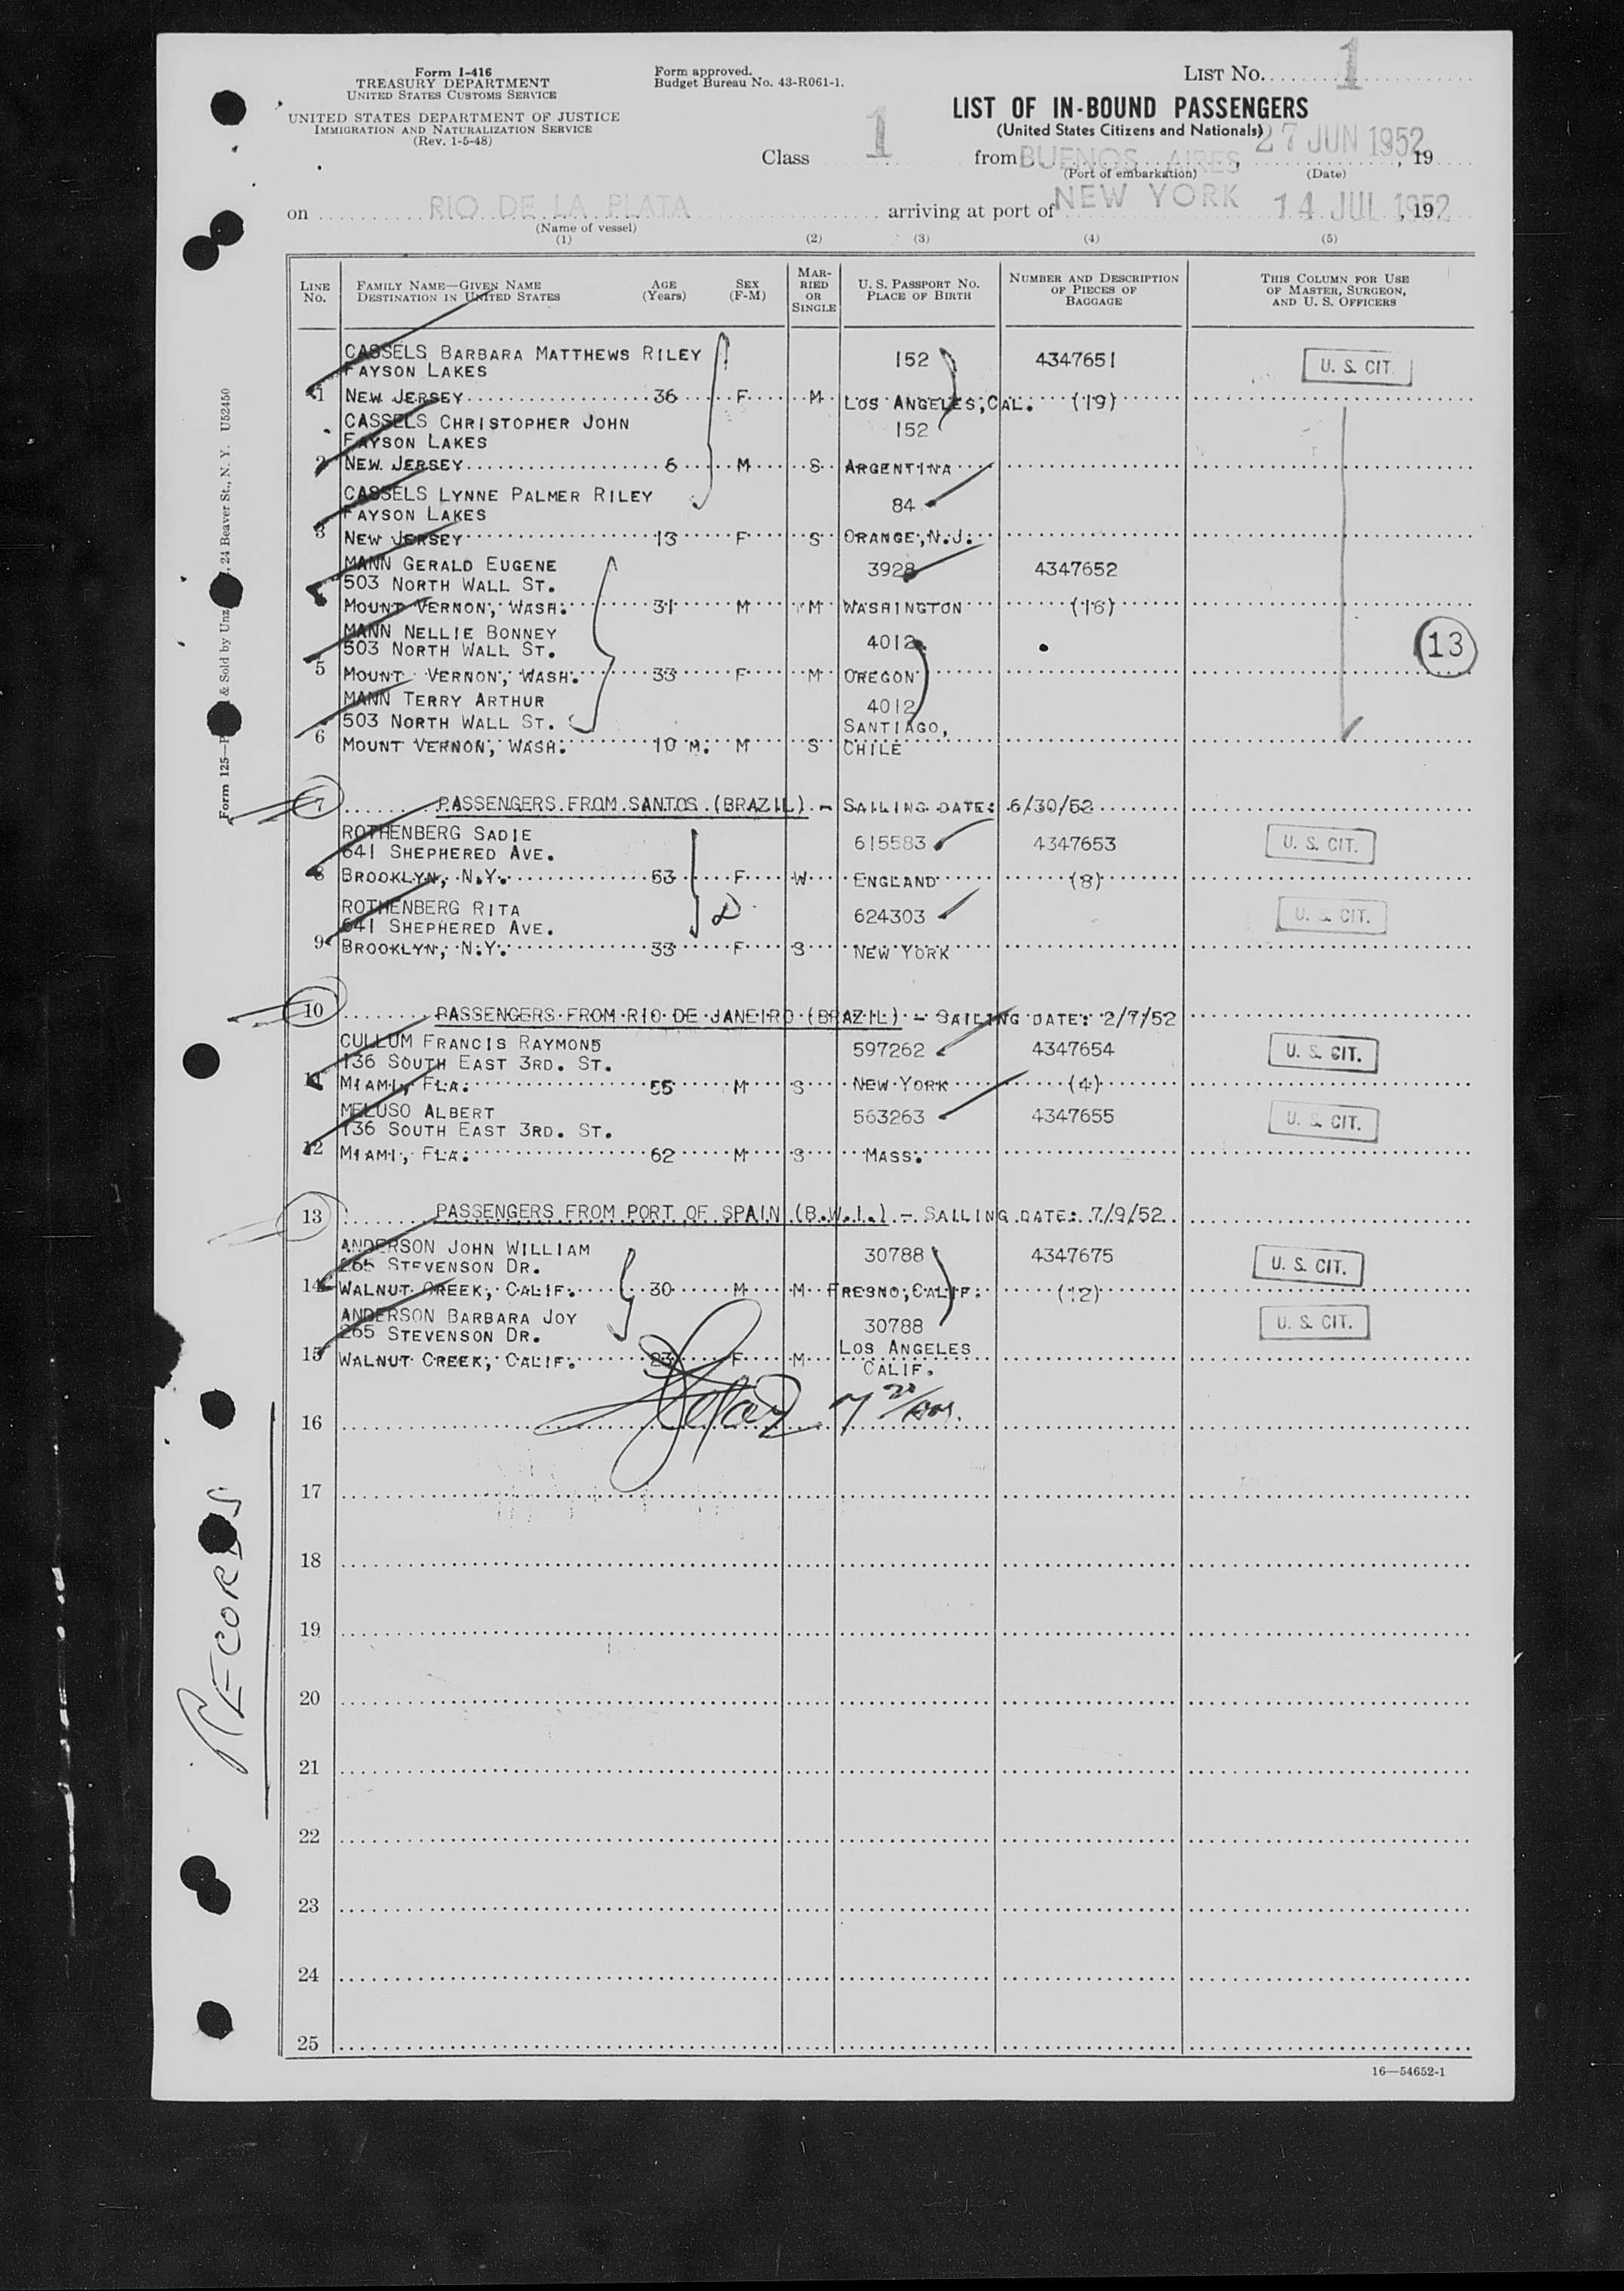 Form I-416
TREASURY DEPARTMENT
UNITED STATES CUSTOMS SERVICE
UNITED STATES DEPARTMENT OF JUSTICE
IMMIGRATION AND NATURALIZATION SERVICE
(Rev. 1-5-48)
Form approved.
Budget Bureau No. 43-R061-1.
LIST No. 1
LIST OF IN-BOUND PASSENGERS
(United States Citizens and Nationals)
Class 1 from BUENOS AIRES, 27 JUN 1952, 19
(Port of embarkation) (Date)
on RIO DE LA PLATA arriving at port of NEW YORK 14 JUL 1952, 19
(Name of vessel)
(1) (2) (3) (4) (5)
LINE No. FAMILY NAME—GIVEN NAME DESTINATION IN UNITED STATES AGE (Years) SEX (F-M) MARRIED OR SINGLE U. S. PASSPORT NO. PLACE OF BIRTH NUMBER AND DESCRIPTION OF PIECES OF BAGGAGE THIS COLUMN FOR USE OF MASTER, SURGEON, AND U. S. OFFICERS
CASSELS BARBARA MATTHEWS RILEY 152 4347651 U. S. CIT.
FAYSON LAKES
1 NEW JERSEY 36 F M LOS ANGELES, CAL. (19)
CASSELS CHRISTOPHER JOHN 152
FAYSON LAKES
2 NEW JERSEY 6 M S ARGENTINA
CASSELS LYNNE PALMER RILEY 84
FAYSON LAKES
3 NEW JERSEY 13 F S ORANGE, N.J.
MANN GERALD EUGENE 3928 4347652
503 NORTH WALL ST.
4 MOUNT VERNON, WASH. 31 M M WASHINGTON (16)
MANN NELLIE BONNEY 4012 13
503 NORTH WALL ST.
5 MOUNT VERNON, WASH. 33 F M OREGON
MANN TERRY ARTHUR 4012
503 NORTH WALL ST. SANTIAGO,
6 MOUNT VERNON, WASH. 10 M. M S CHILE
7 PASSENGERS FROM SANTOS (BRAZIL) - SAILING DATE: 6/30/52
ROTHENBERG SADIE 615583 4347653 U. S. CIT.
641 SHEPHERED AVE.
8 BROOKLYN, N.Y. 63 F W ENGLAND (8)
ROTHENBERG RITA 624303 U. S. CIT.
641 SHEPHERED AVE.
9 BROOKLYN, N.Y. 33 F S NEW YORK
10 PASSENGERS FROM RIO DE JANEIRO (BRAZIL) - SAILING DATE: 2/7/52
CULLUM FRANCIS RAYMOND 597262 4347654 U. S. CIT.
136 SOUTH EAST 3RD. ST.
11 MIAMI, FLA. 55 M S NEW YORK (4)
MELUSO ALBERT 563263 4347655 U. S. CIT.
136 SOUTH EAST 3RD. ST.
12 MIAMI, FLA. 62 M S MASS.
13 PASSENGERS FROM PORT OF SPAIN (B.W.I.) - SAILING DATE: 7/9/52
ANDERSON JOHN WILLIAM 30788 4347675 U. S. CIT.
265 STEVENSON DR.
14 WALNUT CREEK, CALIF. 30 M M FRESNO, CALIF. (12)
ANDERSON BARBARA JOY 30788 U. S. CIT.
265 STEVENSON DR. LOS ANGELES
15 WALNUT CREEK, CALIF. 23 F M CALIF.
16
17
18
19
20
21
22
23
24
25
16—54652-1
24 Beaver St., N. Y. U52450
& Sold by
Form 125
RECORDS